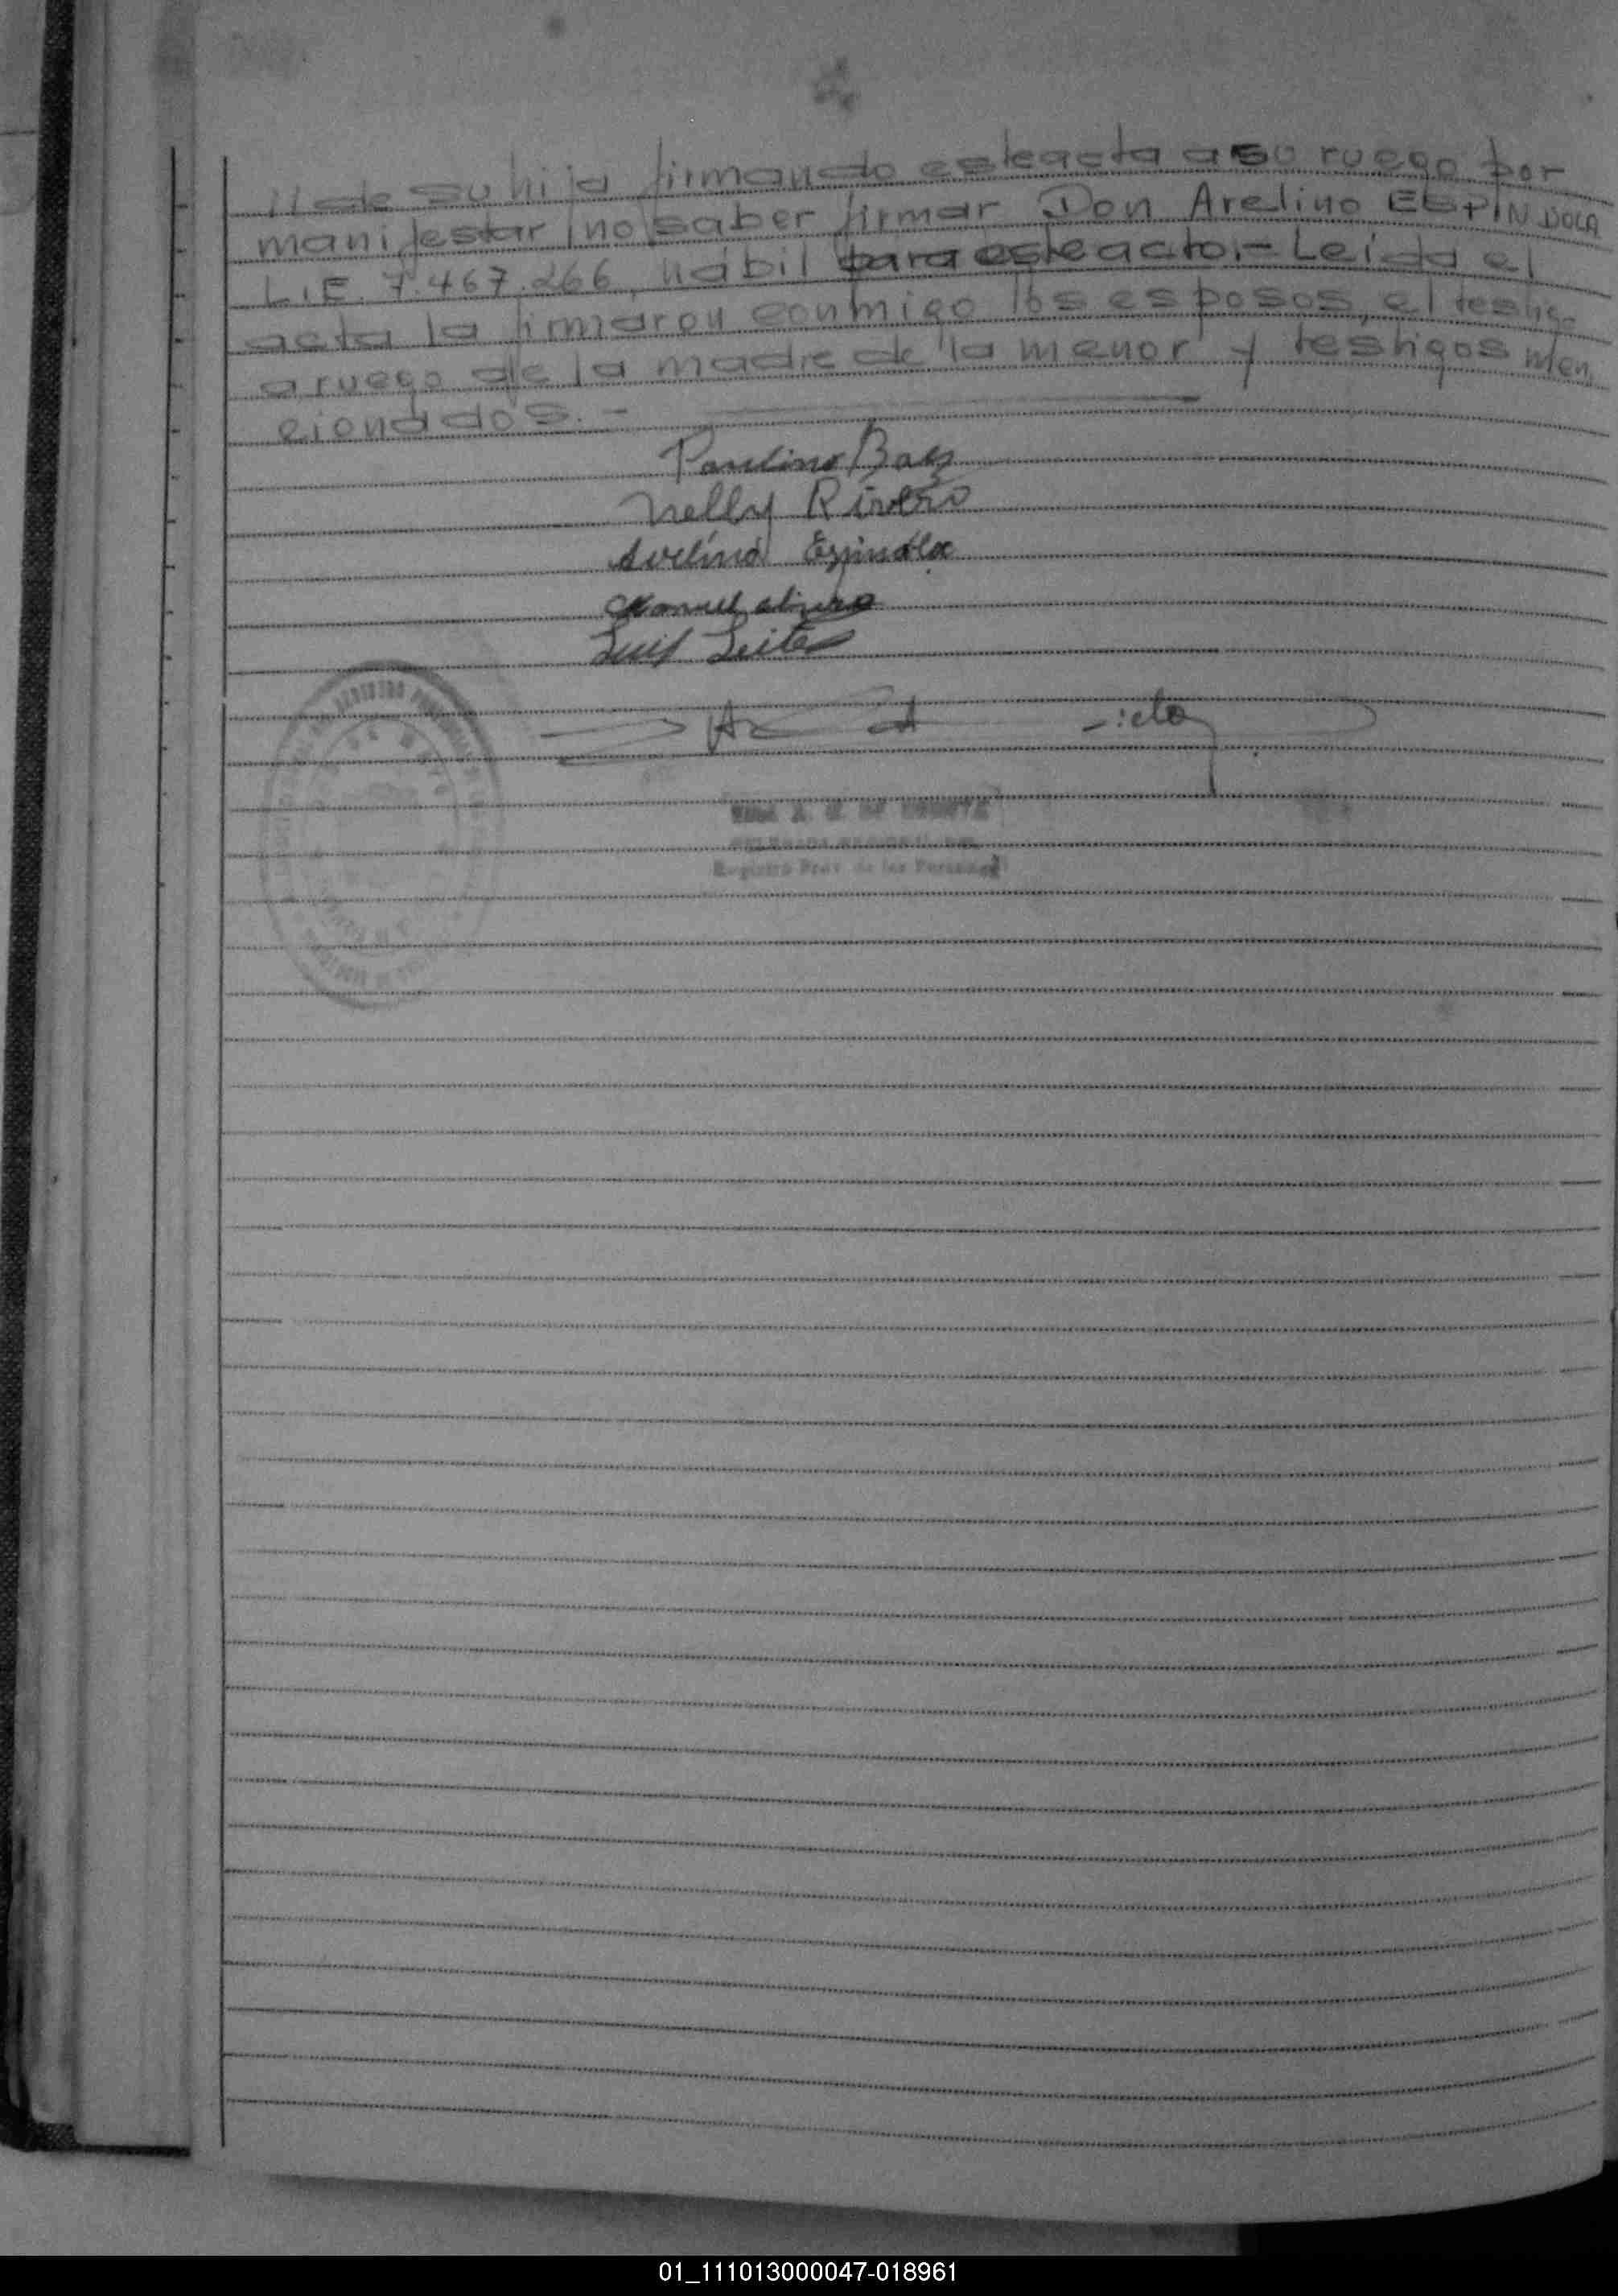 de su hija firmando este acta a su ruego por
manifestar no saber firmar Don Avelino ESPINDOLA
L.E. 7.467.266, hábil para este acto.- Leída el
acta la firmaron conmigo los esposos, el testigo
a ruego de la madre de la menor y testigos men
cionados.-
Paulino Baez
Nelly Rivero
Avelino Espindola
Manuel
Luis Leites
REGISTRO
Registro Prov de las Personas
01_111013000047-018961